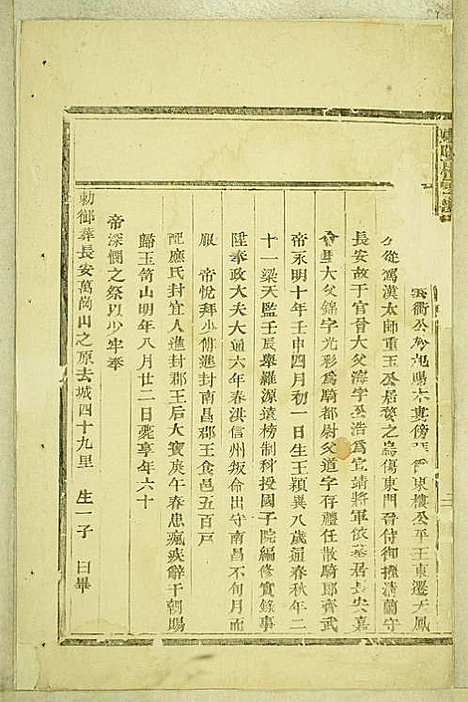 公從鴻漢太師重玉公居婺之烏傷東門晉侍御撞清蘭守
長安故于官晉大父海字公浩為宜靖將軍依墓居長安嘉
大父錦字光彩為騎都尉父道字存禮任散騎郎齊武
帝永明十年壬申四月初一日生王穎異八歲通春秋年二
十一梁天監壬辰舉羅源遠榜制科授國子院編修實錄事
陞奉政大夫大通六年春淇信州叛命出守南昌不旬月而
服 帝悅拜少傅進封南昌郡王食邑五百戶
配應氏封宜人進封郡王后大寶庚午春患瘋疾辭于朝賜
歸玉笥山明年八月廿二日薨享年六十
帝深憫之祭以少牢奉
勅御葬長安萬崗山之原去城四十九里 生一子 曰畢